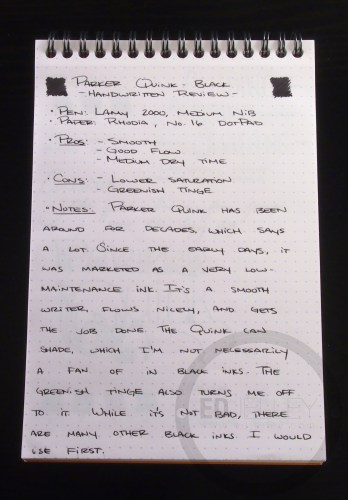 Parker Quink - Black
- Handwritten Review -
• Pen: Lamy 2000, Medium Nib
• Paper: Rhodia, No. 16 DotPad
• Pros: - Smooth
- Good Flow
- Medium Dry Time
• Cons: - Lower Saturation
- Greenish Tinge
• Notes: Parker Quink has been
around for decades, which says
a lot. Since the early days, it
was marketed as a very low-
maintenance ink. It's a smooth
writer, flows nicely, and gets
the job done. The Quink can
shade, which I'm not necessarily
a fan of in black inks. The
greenish tinge also turns me off
to it. While it's not bad, there
are many other black inks I would
use first.